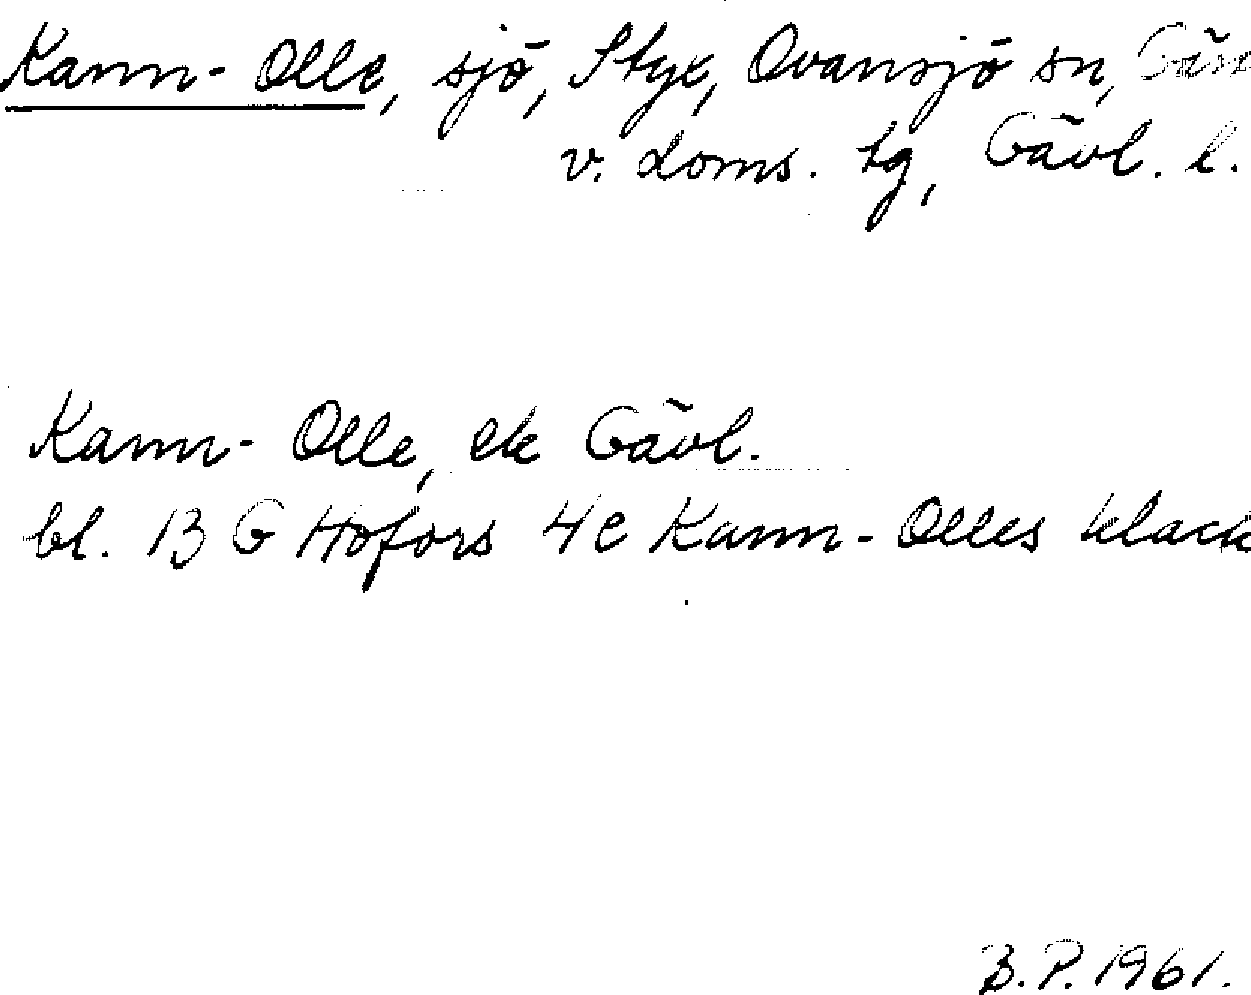 Kann-Olle, sjö, Styx, Ovansjö sn, Gäs
v. doms. tg, Gävl. l.
Kann-Olle, ek Gävl.
bl. 13 G Hofors 4e Kann-Olles klack
B.P. 1961.